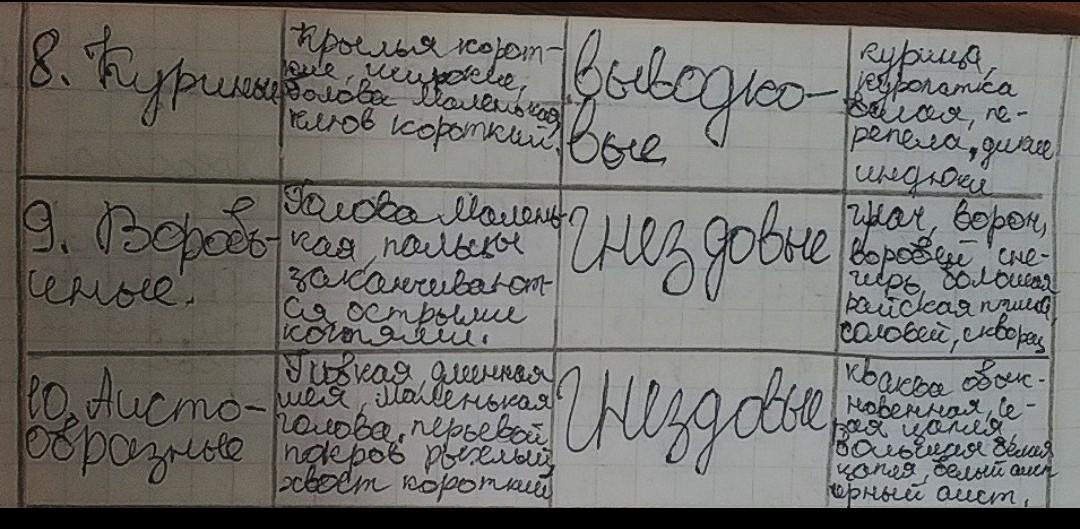 8. Куриные
Крылья корот-
кие, широкие,
голова маленькая,
клюв короткий.
выводко-
вые
курица,
куропатка
белая, пе-
репела, дикие
индюки
9. Воробь-
иные.
Голова малень-
кая, пальцы
заканчивают-
ся острыми
когтями.
Гнездовые
грач, ворон,
воробей, сне-
гирь, большая
райская птица,
соловей, скворец
10. Аисто-
образные
Гибкая, длинная
шея, маленькая
голова, перьевой
покров рыхлый,
хвост короткий
Гнездовые
кваква обык-
новенная, се-
рая цапля
большая белая
цапля, белый аист
чёрный аист.